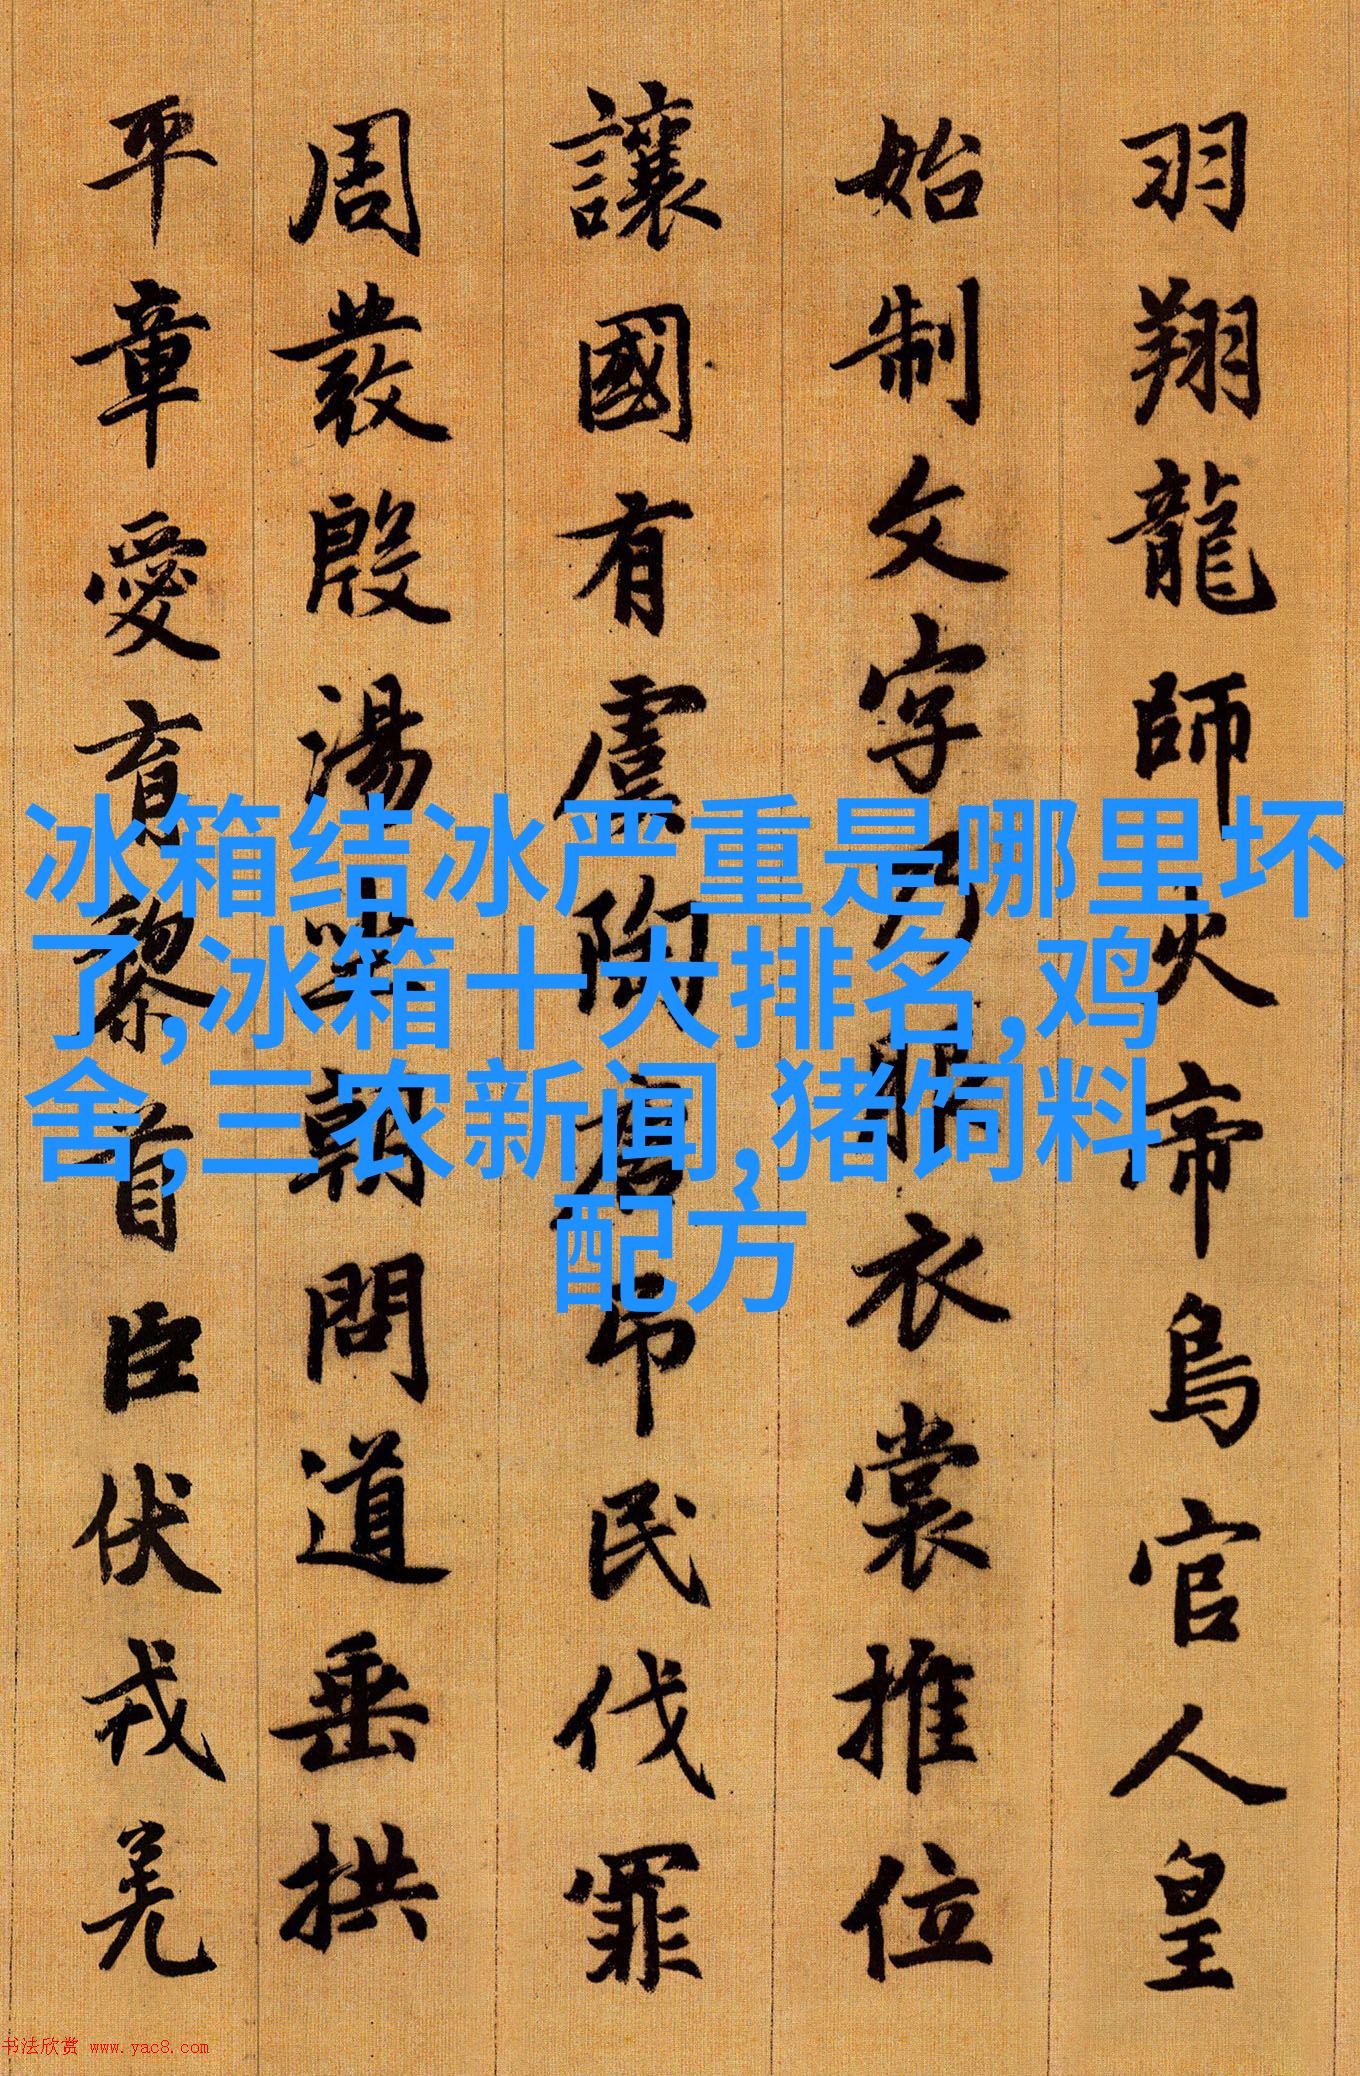 羽翔龍師火帝鳥官人皇
始制文字乃服衣裳推位
讓國有虞陶唐弔民伐罪
周發殷湯坐朝問道垂拱
平章愛育黎首臣伏戎羌
冰箱结冰严重是哪里坏
了,冰箱十大排名,鸡
舍,三农新闻,猪饲料
配方
书法欣赏 www.yac8.com